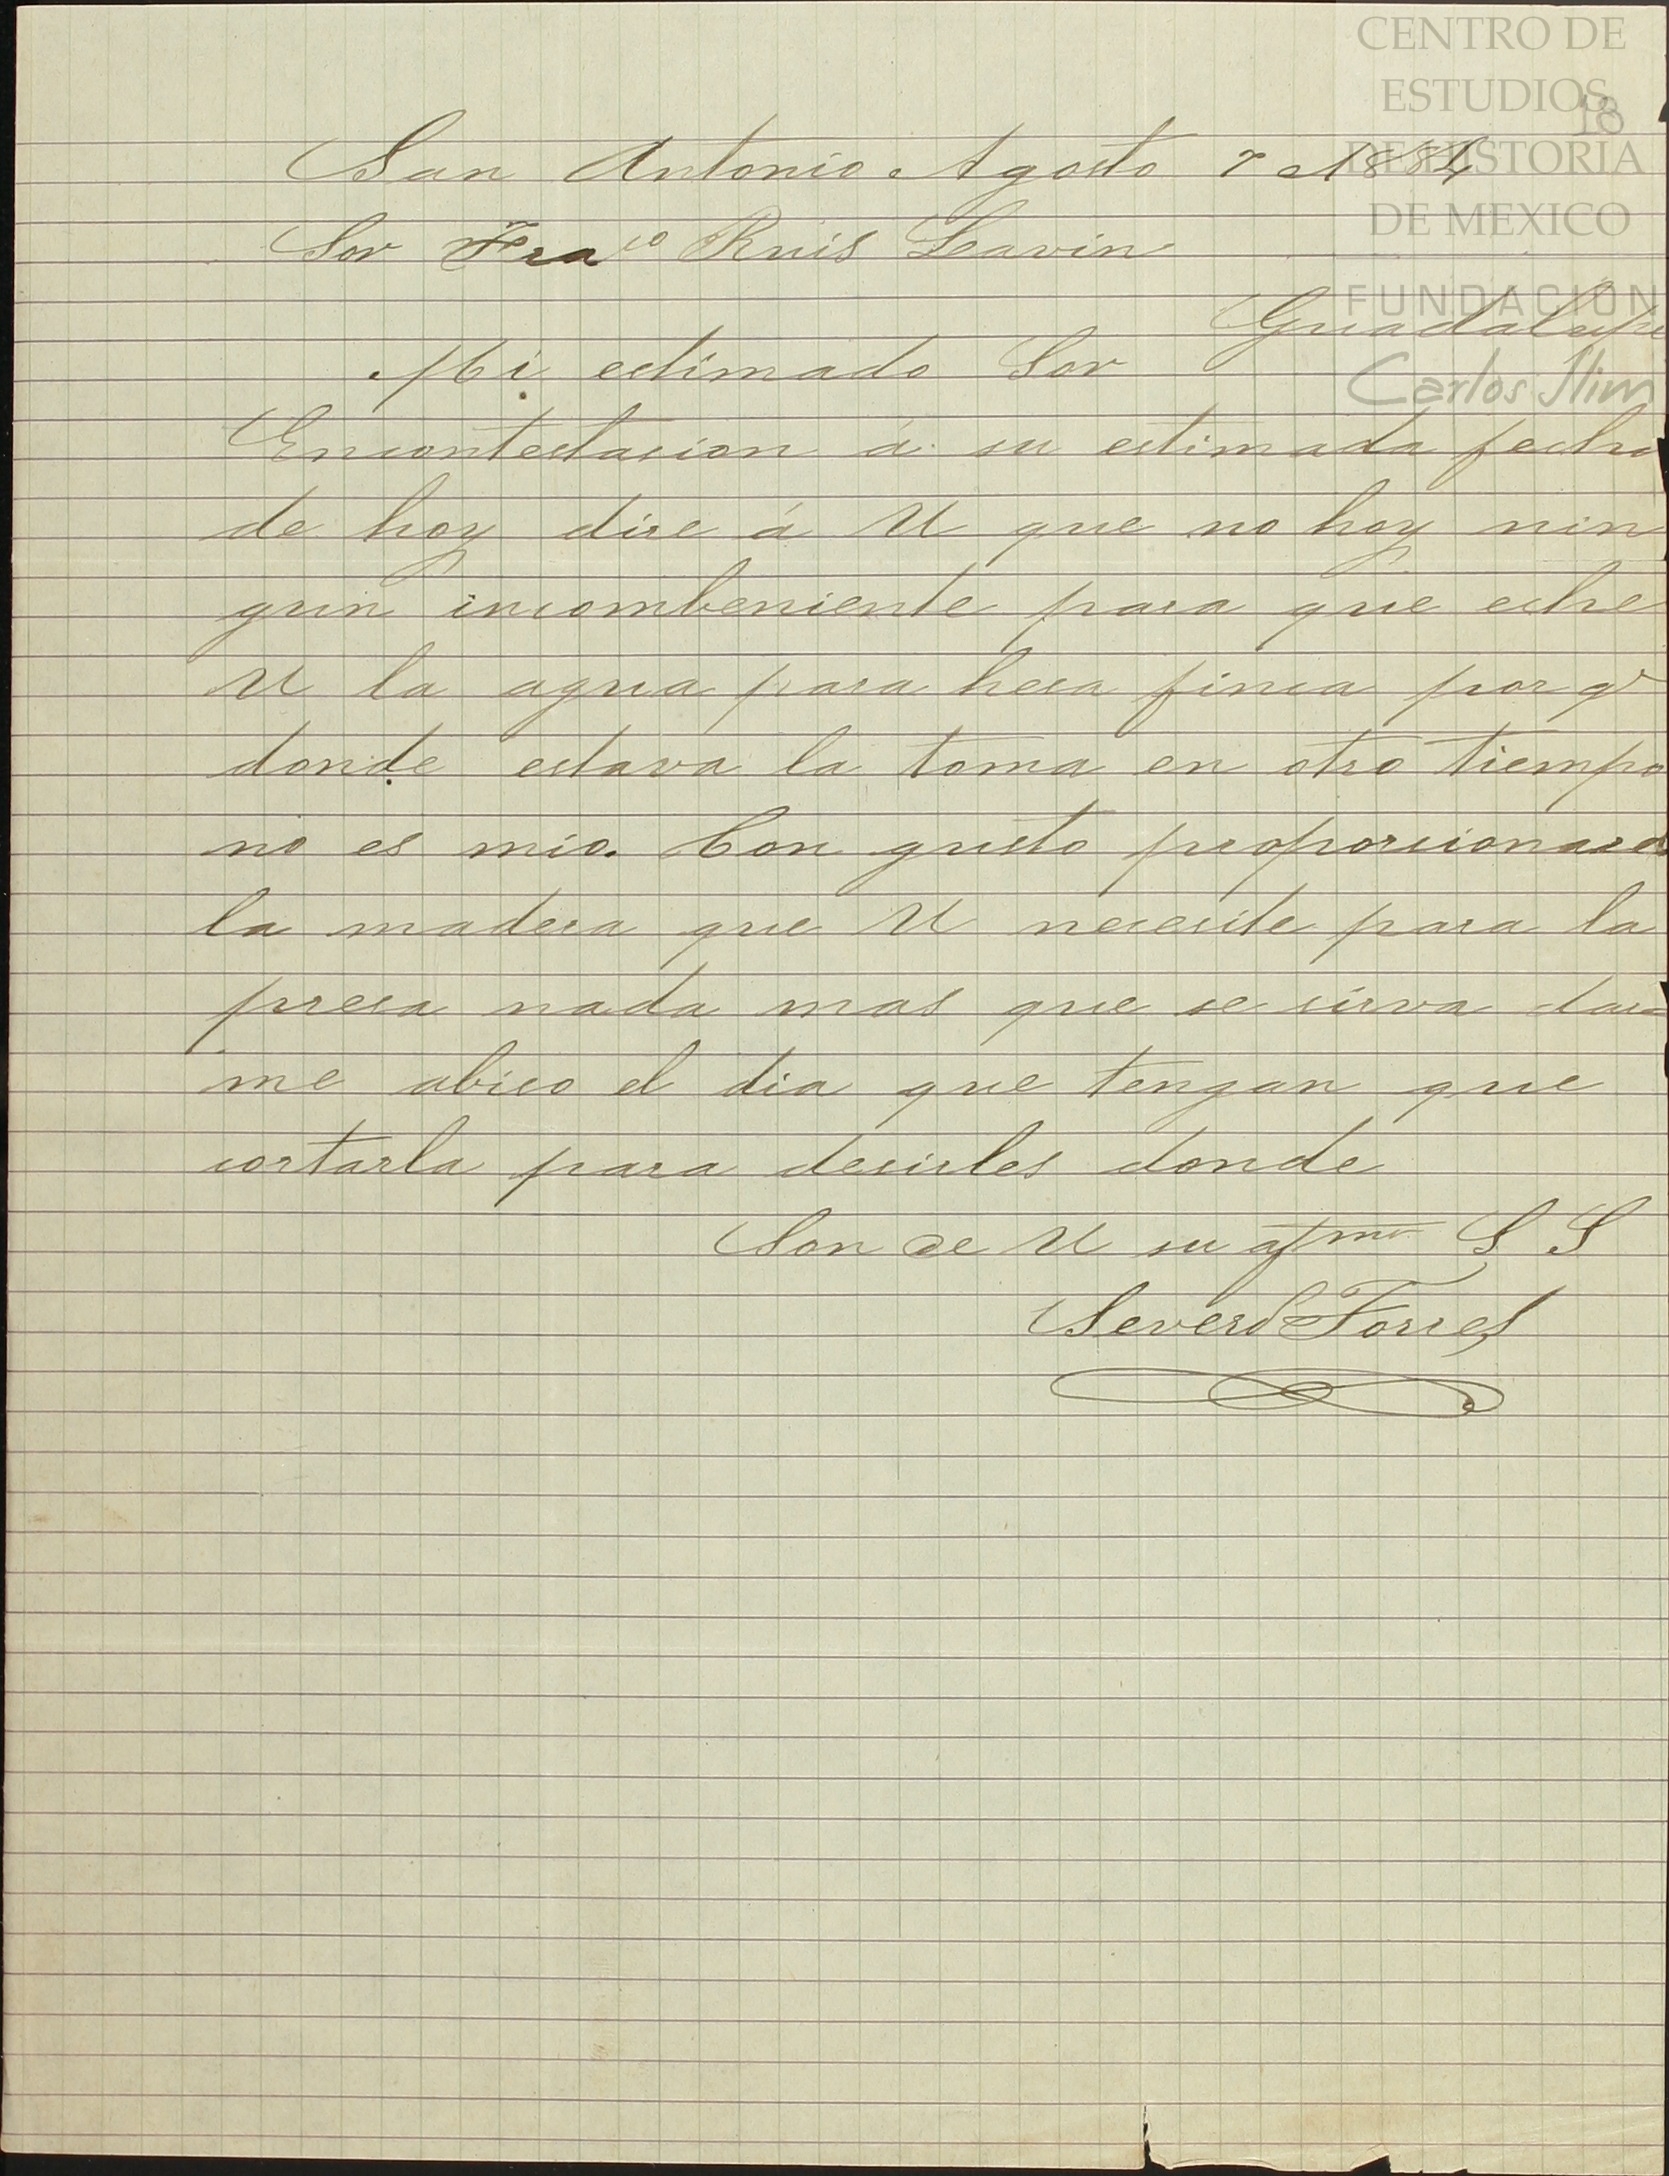 CENTRO DE
ESTUDIOS
DE HISTORIA
DE MEXICO
FUNDACION
Carlos Slim
18
San Antonio Agosto 7 1884
Sor Franco Ruis Lavin
Guadalupe
Mi estimado Sor
Encontestacion á su estimada fecha
de hoy dire á U que no hoy nin
gun incombeniente para que eche
U la agua para hesa finca por qe
donde estava la toma en otro tiempo
no es mio. Con gusto proporcionare
la madera que U necesite para la
presa nada mas que se sirva dar
me abiso el dia que tengan que
cortarla para decirles donde
Son de U su afmo S S
Severo Torres